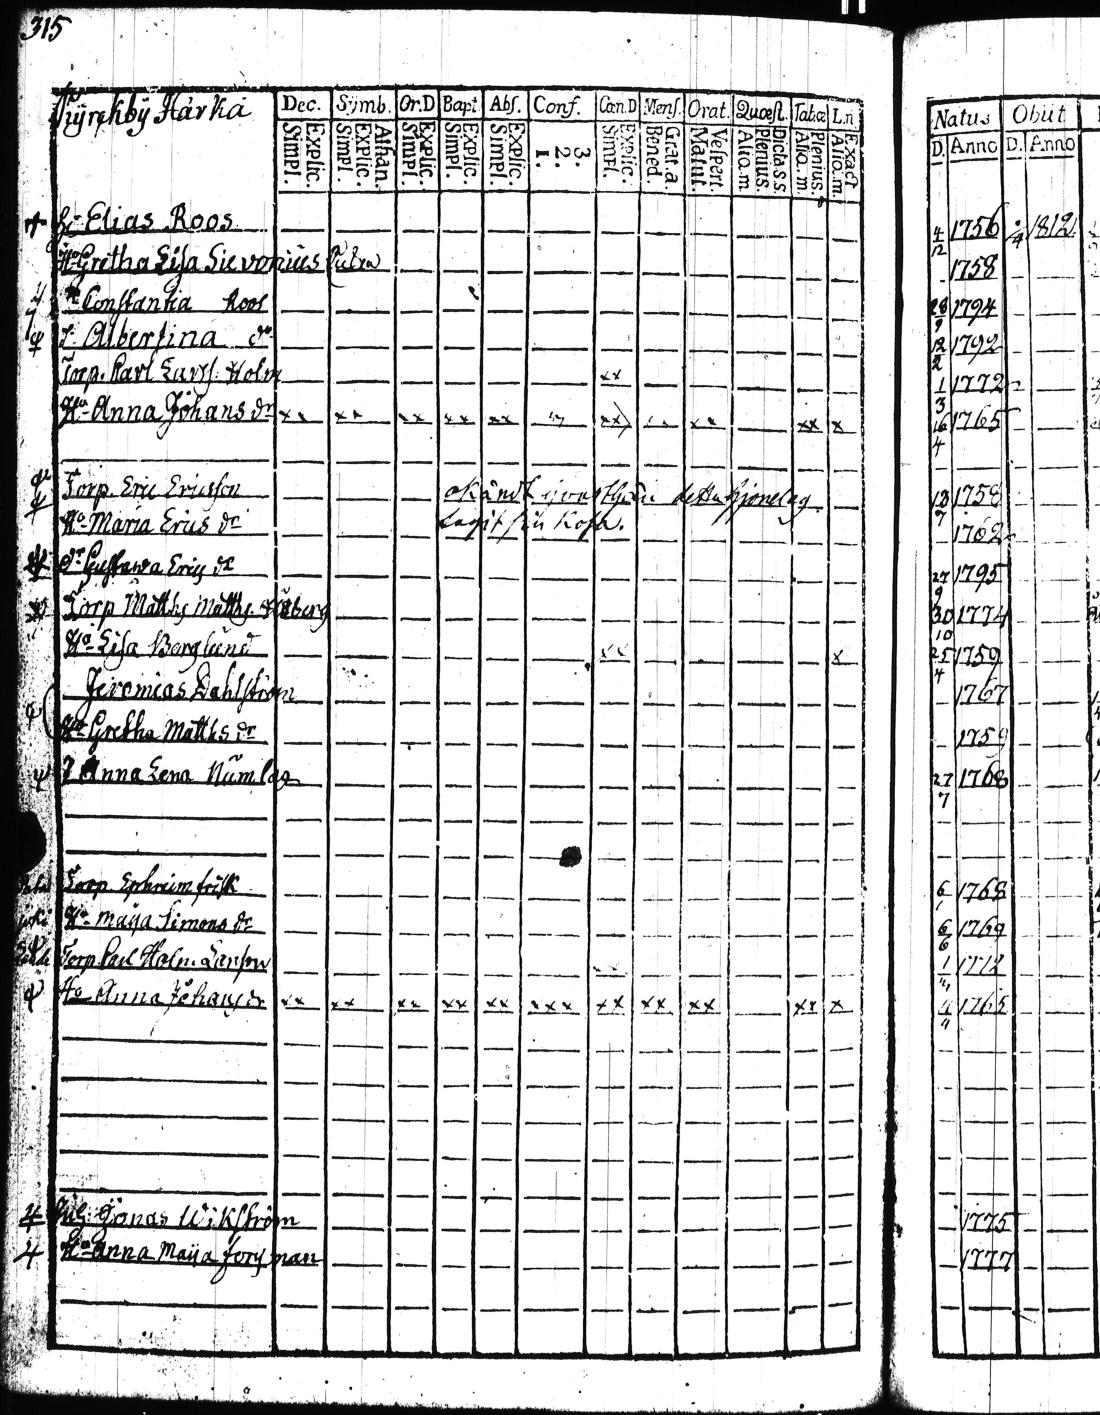 315
Härkä
Dec. Symb. Or.D Bapt. Abs. Conf. Cœn.D Mens. Orat. Quœst. Tab.œ L.n Natus Obiit
Simpl. Explic. Simpl. Explic. Athan. Simpl. Explic. Simpl. Explic. Simpl. Explic. 1. 2. 3. Simpl. Explic. Bened. Grat.a. Matut. Vespert. Aliq.m. Plenius. Dicta s.s. Aliq.m. Plenius. Aliq.m. Exact D. Anno D. Anno
Elias Roos 4/12 1756 1812
Hu Gretha Lisa Sievonius 1758
Constantia Roos 28/9 1794
Albertina do 12/2 1792
Torp. Karl Larss. Holm xx 1/3 1772
Hu Anna Johans dr xx xx xx xx xx xx xx xx x 16/4 1765
Torp Eric Ericsson 13/7 1758
Hu Maria Erics dr 1762
dr Gustava Erics dr 27/9 1795
Torp Matths Matths. 30/10 1774
Hu Lisa Berglund xx x 25/4 1759
Jeremias Dahlström 1767
Hu Gretha Matths dr 1759
Anna Lena 27/7 1768
Torp Ephraim frisk 6/1 1768
Hu Maija Simons dr 6/6 1769
Torp Karl Holm Larsson 1772
Hu Anna Johans dr xx xx xx xx xx xxx xx xx xx xx x 1765
Jonas Wikström 1775
Hu Anna Maija forsman 1777